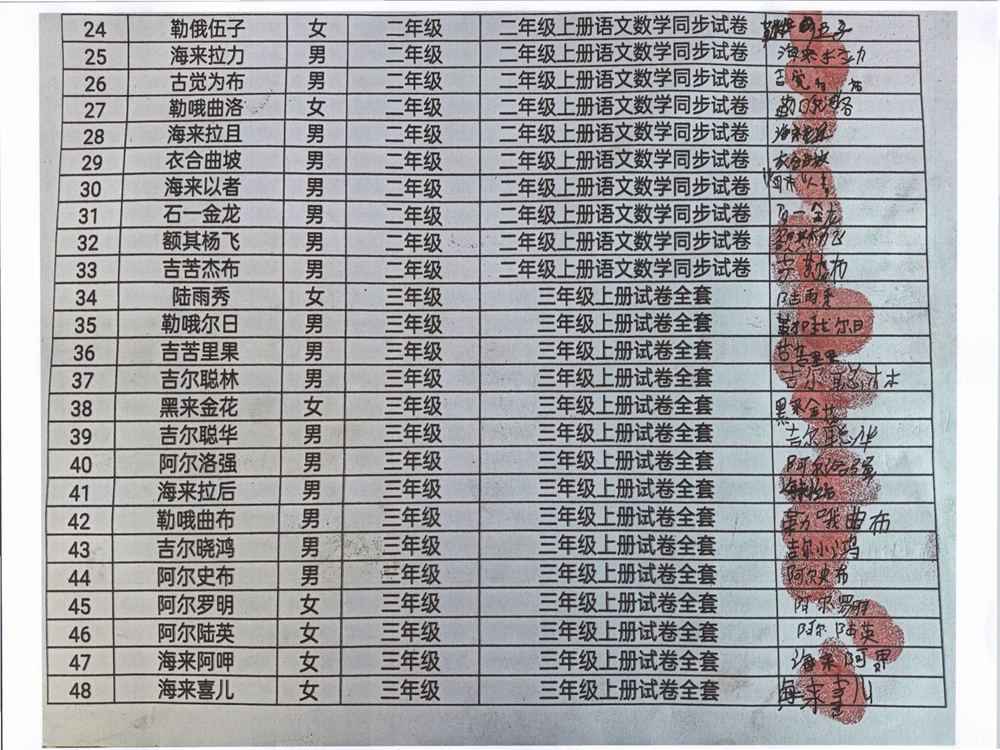 24 勒俄伍子 女 二年级 二年级上册语文数学同步试卷
25 海来拉力 男 二年级 二年级上册语文数学同步试卷 海来
26 古觉为布 男 二年级 二年级上册语文数学同步试卷
27 勒哦曲洛 女 二年级 二年级上册语文数学同步试卷
28 海来拉且 男 二年级 二年级上册语文数学同步试卷
29 衣合曲坡 男 二年级 二年级上册语文数学同步试卷
30 海来以者 男 二年级 二年级上册语文数学同步试卷
31 石一金龙 男 二年级 二年级上册语文数学同步试卷 石一金龙
32 额其杨飞 男 二年级 二年级上册语文数学同步试卷
33 吉苦杰布 男 二年级 二年级上册语文数学同步试卷
34 陆雨秀 女 三年级 三年级上册试卷全套 陆雨秀
35 勒哦尔日 男 三年级 三年级上册试卷全套
36 吉苦里果 男 三年级 三年级上册试卷全套
37 吉尔聪林 男 三年级 三年级上册试卷全套 吉尔聪林
38 黑来金花 女 三年级 三年级上册试卷全套 黑来金花
39 吉尔聪华 男 三年级 三年级上册试卷全套 吉尔聪华
40 阿尔洛强 男 三年级 三年级上册试卷全套 阿尔洛强
41 海来拉后 男 三年级 三年级上册试卷全套
42 勒哦曲布 男 三年级 三年级上册试卷全套 勒哦曲布
43 吉尔晓鸿 男 三年级 三年级上册试卷全套 吉尔小鸿
44 阿尔史布 男 三年级 三年级上册试卷全套 阿尔史布
45 阿尔罗明 女 三年级 三年级上册试卷全套 阿尔罗明
46 阿尔陆英 女 三年级 三年级上册试卷全套 阿尔陆英
47 海来阿呷 女 三年级 三年级上册试卷全套 海来阿呷
48 海来喜儿 女 三年级 三年级上册试卷全套 海来喜儿